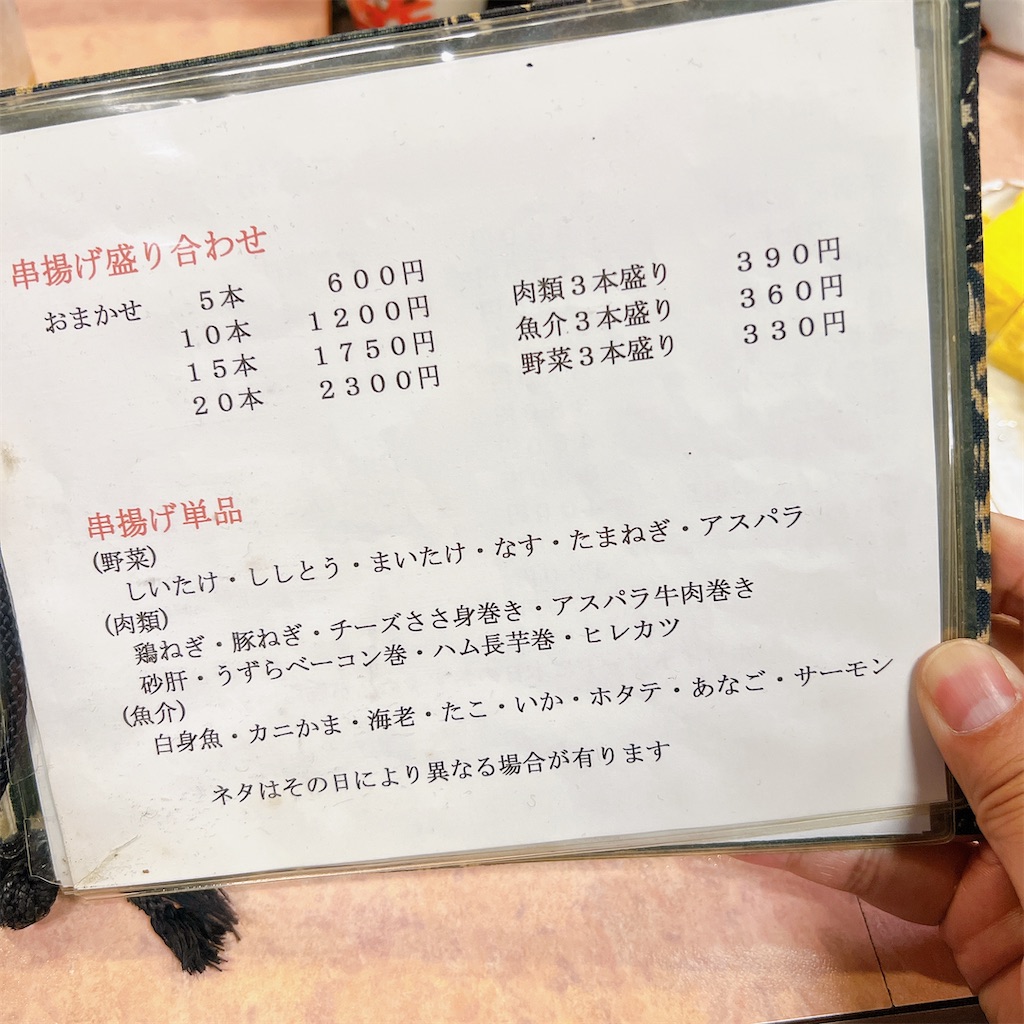 串揚げ盛り合わせ
おまかせ　５本　６００円
１０本　１２００円
１５本　１７５０円
２０本　２３００円
肉類３本盛り　３９０円
魚介３本盛り　３６０円
野菜３本盛り　３３０円
串揚げ単品
(野菜)
しいたけ・ししとう・まいたけ・なす・たまねぎ・アスパラ
(肉類)
鶏ねぎ・豚ねぎ・チーズささ身巻き・アスパラ牛肉巻き
砂肝・うずらベーコン巻・ハム長芋巻・ヒレカツ
(魚介)
白身魚・カニかま・海老・たこ・いか・ホタテ・あなご・サーモン
ネタはその日により異なる場合が有ります